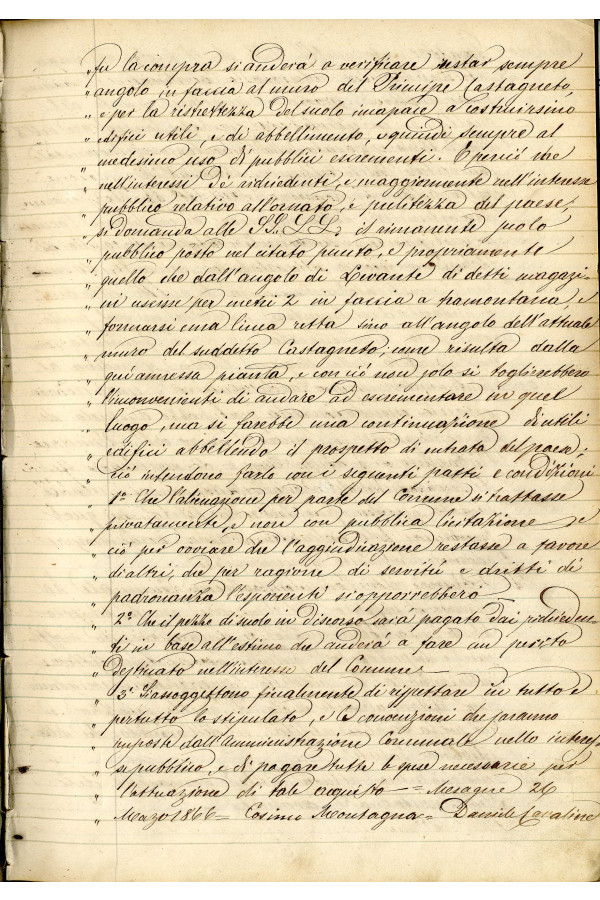 „ fu la compra si anderá a verificare restar sempre
„ angolo in faccia al muro del Principe Castagneto,
„ e per la ristrettezza del suolo incapace a costruirsino
„ edifici utili, e di abbellimento, e quindi sempre al
„ medesimo uso di pubblici escrementi. E perció che
„ nell'interessi de' richiedenti, e maggiormente nell'interesse
„ pubblico relativo all'ornato, e pulitezza del paese,
„ si domanda alle SS. LL. il rimanente suolo
„ pubblico posto nel citato punto, e propriamente
„ quello che dall'angolo di Levante di detti magazi-
„ ni uscisse per metri 2 in faccia a tramontana, e
„ formarsi una linea retta sino all'angolo dell'attuale
„ muro del suddetto Castagneto; come risulta dalla
„ quí annessa pianta, e con ció non solo si toglierebbero
„ l'inconvenienti di andare ad escrementare in quel
„ luogo, ma si farebbe una continuazione di utili
„ edifici abbellendo il prospetto di entrata del paese;
„ ció intendono farlo con i seguenti patti e condizioni
„ 1º Che l'alienazione per parte del Comune si trattasse
„ privatamente, e non con pubblica licitazione e
„ ció per ovviare che l'aggiudicazione restasse a favore
„ di altri, che per ragione di servitú e dritti di
„ padronanza l'esponenti si opporrebbero
„ 2º Che il pezzo di suolo in discorso sará pagato dai richieden-
„ ti in base all'estimo che anderá a fare un perito
„ destinato nell'interesse del Comune
„ 3º Si assoggettono finalmente di rispettare in tutto e
„ pertutto lo stipulato, e le convenzioni che saranno
„ imposte dall'Amministrazione Comunale nello interes-
„ se pubblico, e di pagare tutte le spese necessarie per
„ l'attuazione di tale acquisto = Mesagne 26
„ Marzo 1866 = Cosimo Montagna = Daniele Cavaliere